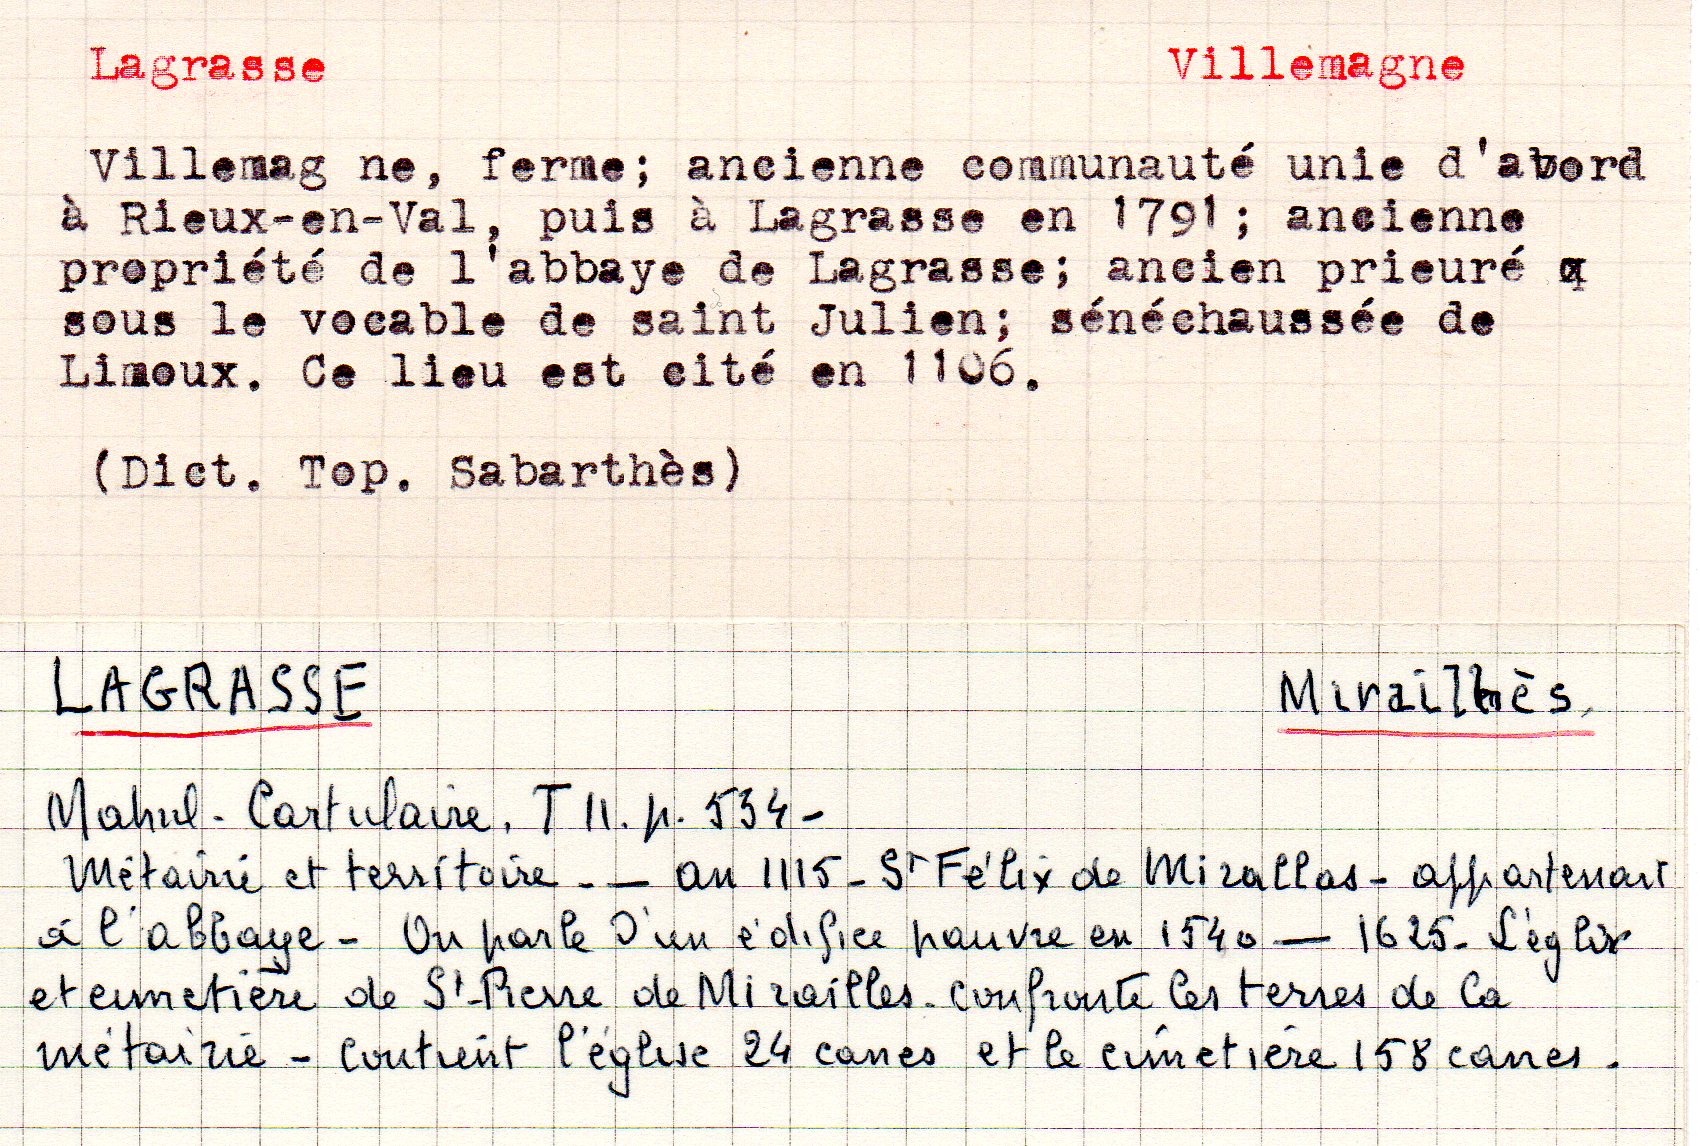 Lagrasse Villemagne
Villemag ne, ferme; ancienne communauté unie d'abord
à Rieux-en-Val, puis à Lagrasse en 1791; ancienne
propriété de l'abbaye de Lagrasse; ancien prieuré
sous le vocable de saint Julien; sénéchaussée de
Limoux. Ce lieu est cité en 1106.
(Dict. Top. Sabarthès)
LAGRASSE Mirailhès.
Mahul - Cartulaire. T II. p. 534 -
Métairie et territoire - — an 1115 - St Félix de Mirallas - appartenant
à l'abbaye - On parle d'un édifice pauvre en 1540 — 1625 - L'église
et cimetière de St-Pierre de Mirailles. confronte les terres de la
métairie - contient l'église 24 canes et le cimetière 158 canes.